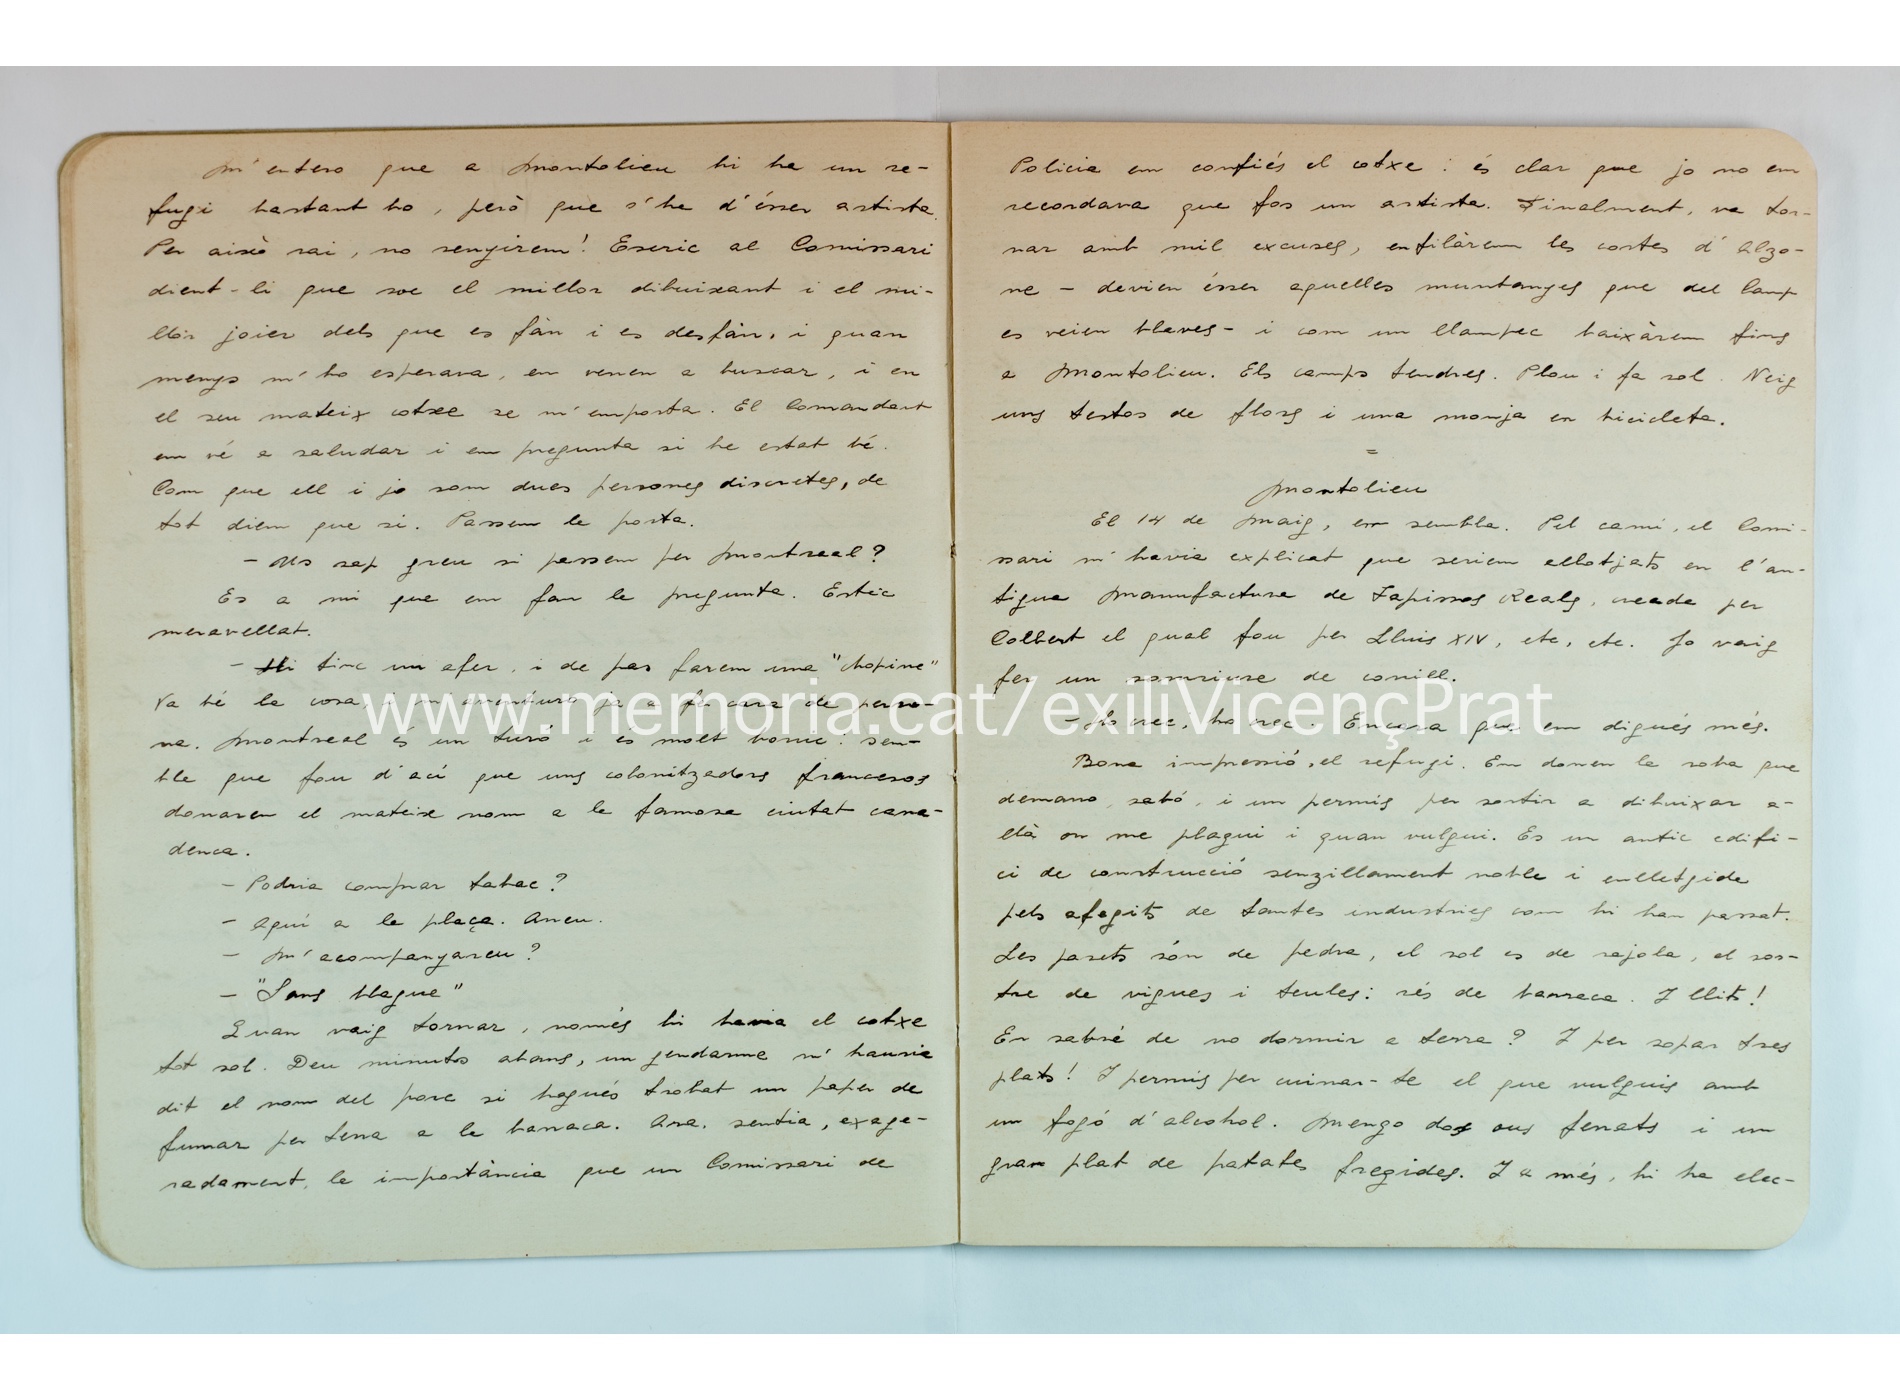 M'entero que a Montolieu hi ha un re-
fugi bastant bo, però que s'ha d'ésser artista.
Per això rai, no renyirem! Escric al Comissari
dient-li que soc el millor dibuixant i el mi-
llor joier dels que es fan i es desfàn, i quan
menys m'ho esperava, em venen a buscar, i en
el seu mateix cotxe se m'emporta. El Comandant
em vé a saludar i em pregunta si he estat bé.
Com que ell i jo som dues persones discretes, de
tot diem que si. Passem la porta.
- Us sap greu si passem per Montreal?
Es a mi que em fan la pregunta. Estic
meravellat.
- Hi tinc un afer, i de pas farem una "chopine"
Va bé la cosa, i m'aventuro ja a fer cara de perso-
na. Montreal és un turó i és molt bonic: sem-
bla que fou d'ací que uns colonitzadors francesos
donaren el mateix nom a la famosa ciutat cana-
denca.
- Podria comprar tabac?
- Aquí a la plaça. Aneu.
- M'acompanyareu?
- "Sans blague"
Quan vaig tornar, només hi havia el cotxe
tot sol. Deu minutos abans, un gendarme m'hauria
dit el nom del porc si hagués trobat un paper de
fumar per terra a la barraca. Ara, sentia, exage-
radament, la importància que un Comissari de
Policia em confiés el cotxe: és clar que jo no em
recordava que fos un artista. Finalment, va tor-
nar amb mil excuses, enfilàrem les costes d'Alzo-
ne - devien ésser aquelles muntanyes que del Camp
es veien blaves - i com un llampec baixàrem fins
a Montolieu. Els camps tendres. Plou i fa sol. Veig
uns testos de flors i una monja en bicicleta.
=
Montolieu
El 14 de Maig, em sembla. Pel camí, el Comi-
ssari m'havia explicat que seriem allotjats en l'an-
tigua Manufactura de Tapissos Reals, creada per
Colbert el qual fou per Lluis XIV, etc, etc. Jo vaig
fer un somriure de conill.
- Ho crec, ho crec. Encara que em digués més.
Bona impressió, el refugi. Em donen la roba que
demano, sabó, i un permís per sortir a dibuixar a-
llà on me plagui i quan vulgui. Es un antic edifi-
ci de construcció senzillament noble i enlletgida
pels afegits de tantes industries com hi han passat.
Les parets són de pedra, el sol es de rajola, el sos-
tre de vigues i teules: rés de barraca. I llits!
En sabré de no dormir a terra? I per sopar tres
plats! I permís per cuinar-te el que vulguis amb
un fogó d'alcohol. Menjo dos ous ferrats i un
gran plat de patates fregides. I a més, hi ha elec-
www.memoria.cat/exiliVicençPrat